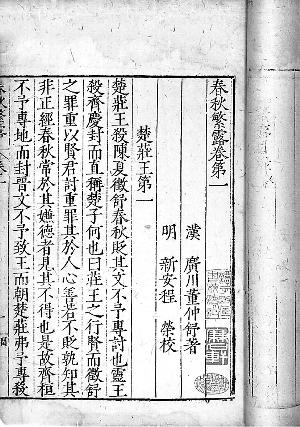 春秋繁露卷第一
漢 廣川董仲舒著
明 新安程 榮校
楚莊王第一
楚莊王殺陳夏徵舒春秋貶其文不予專討也靈王
殺齊慶封而直稱楚子何也曰莊王之行賢而徵舒
之罪重以賢君討重罪其於人心善若不貶孰知其
非正經春秋常於其嫌德者見其不得也是故齊桓
不予專地而封晉文不予致王而朝楚莊弗予專殺